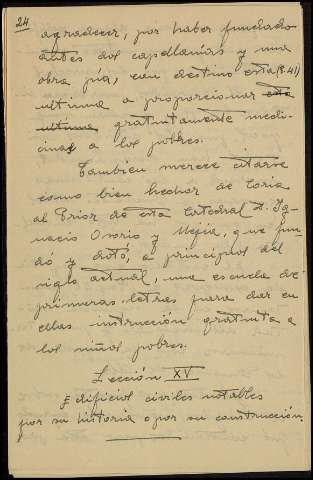 24
agradecer, por haber fundado
antes dos capellanías y una
obra pía, con destino esta (P. 41)
ultima a proporcionar esta
ultima gratuitamente medi-
cinas a los pobres.
Tambien merece citarse
como bien hechor de Coria
al Prior de esta Catedral D. Ig-
nacio Osorio y Mejia, que fun-
dó y dotó, a principios del
siglo actual, una escuela de
primeras letras para dar en
ellas instrucción gratuita a
los niños pobres.
Lección XV
Edificios civiles notables
por su historia o por su construcción.